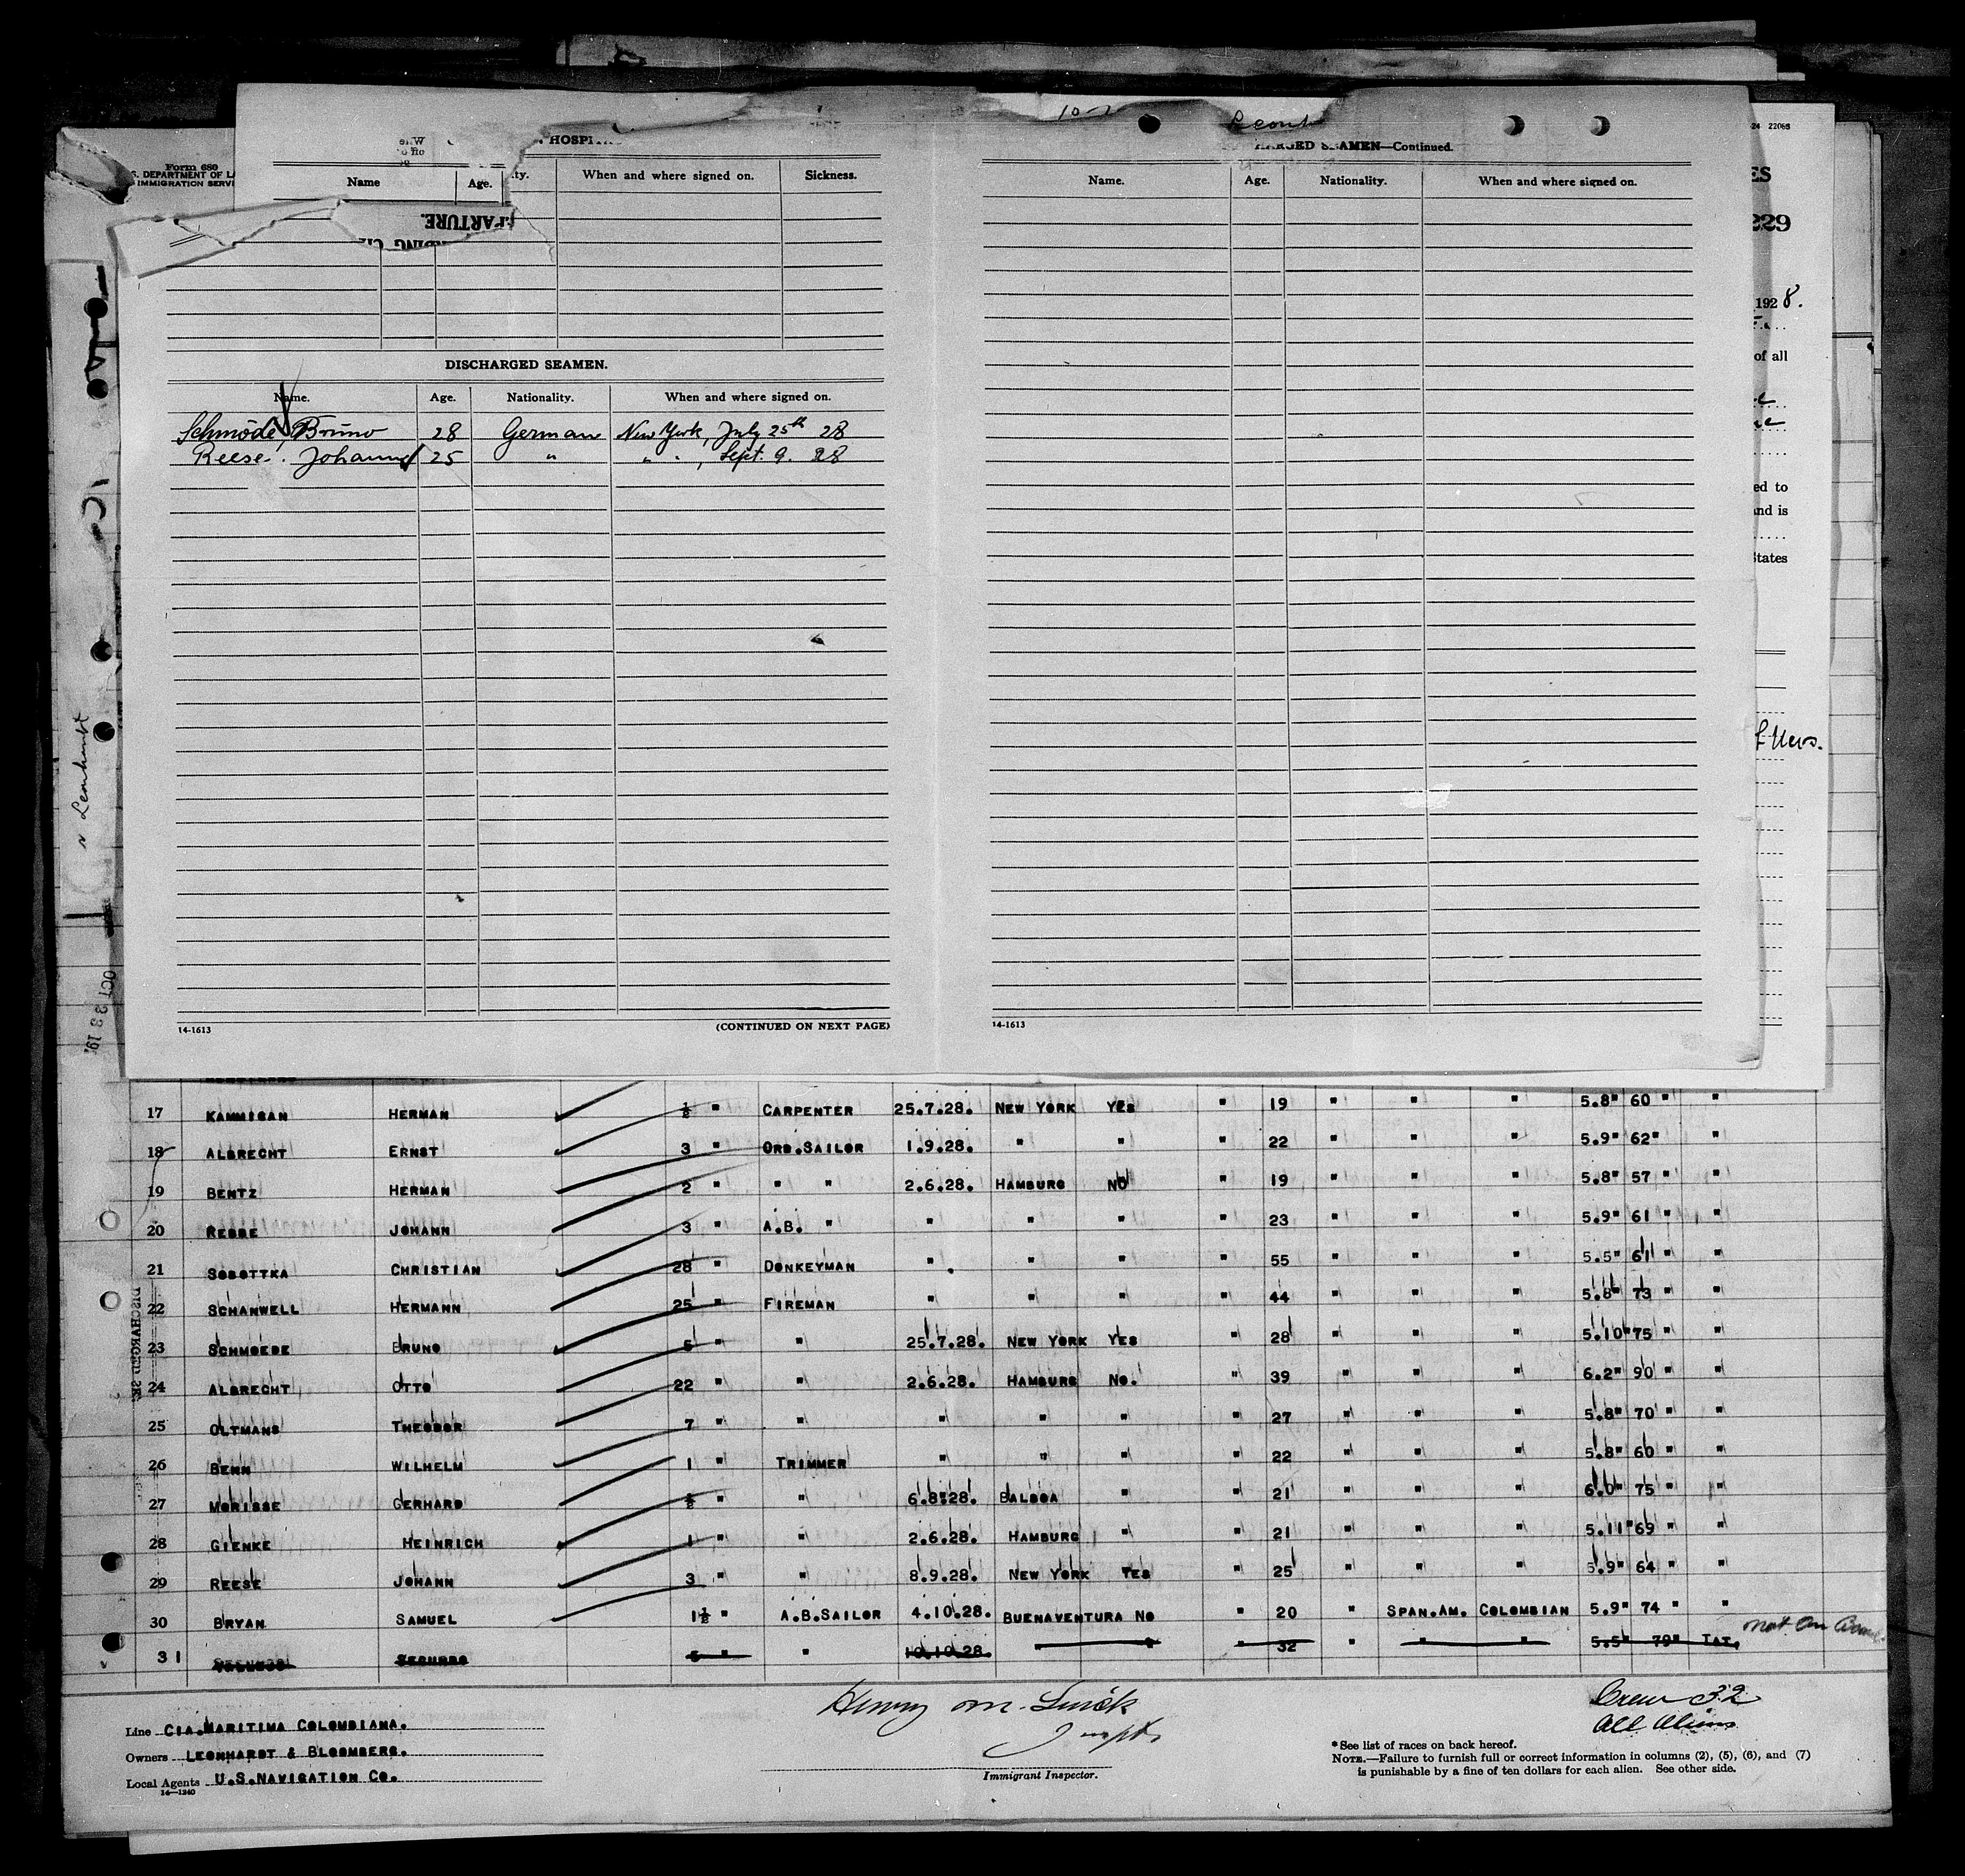 Form 680
S. DEPARTMENT OF LA
IMMIGRATION SERV
HOSPI
Name Age. When and where signed on. Sickness.
PARTURE.
DISCHARGED SEAMEN.
Name. Age. Nationality. When and where signed on.
Schmöde, Bruno 28 German New York, July 25th 28
Reese. Johann 25 " " " , Sept. 9. 28
14-1613 (CONTINUED ON NEXT PAGE)
10-
Leonh
ARGED SEAMEN—Continued.
Name. Age. Nationality. When and where signed on.
14-1613
24 22068
ES
229
192 8.
of all
ed to
and is
States
Leonhardt
17 KAMMIGAN HERMAN ½ " CARPENTER 25.7.28. NEW YORK YES " 19 " " " 5.8" 60 " "
18 ALBRECHT ERNST 3 " ORD.SAILOR 1.9.28. " " " 22 " " " 5.9" 62" "
19 BENTZ HERMAN 2 " " " 2.6.28. HAMBURG NO " 19 " " " 5.8" 57 " "
20 JOHANN 3 " A.B. " " " " " 23 " " " 5.9" 61 " "
21 SOBOTTKA CHRISTIAN 28 " DONKEYMAN " " " " 55 " " " 5.5" 61 " "
22 SCHANWELL HERMANN 25 " FIREMAN " " " " 44 " " " 5.8" 73 " "
23 SCHMOEDE BRUNO 6 " " 25.7.28. NEW YORK YES " 28 " " " 5.10"75 " "
24 ALBRECHT OTTO 22 " " 2.6.28. HAMBURG NO. " 39 " " " 6.2" 90 " "
25 OLTMANS THEODOR 7 " " " " " " 27 " " " 5.8" 70 " "
26 BENN WILHELM 1 " TRIMMER " " " " 22 " " " 5.8" 60 " "
27 MORISSE GERHARD ½ " " 6.8.28. BALBOA " " 21 " " " 6.0" 75 " "
28 GIENKE HEINRICH 1 " " 2.6.28. HAMBURG " " 21 " " " 5.11"69 " "
29 REESE JOHANN 3 " " 8.9.28. NEW YORK YES " 25 " " " 5.9" 64 " "
30 BRYAN SAMUEL 1½ " A.B.SAILOR 4.10.28. BUENAVENTURA NO " 20 " SPAN.AM. COLOMBIAN 5.9" 74 " "
31 " " 10.10.28. " " 32 " " " 5.5" 79" TAT. not on Board
Line CIA.MARITIMA COLOMBIANA.
Owners LEONHARDT & BLOOMBERG.
Local Agents U.S.NAVIGATION CO.
14—1240
Henry M.
Inspt.
Immigrant Inspector.
Crew 32
All Aliens
* See list of races on back hereof.
NOTE.—Failure to furnish full or correct information in columns (2), (5), (6), and (7)
is punishable by a fine of ten dollars for each alien. See other side.